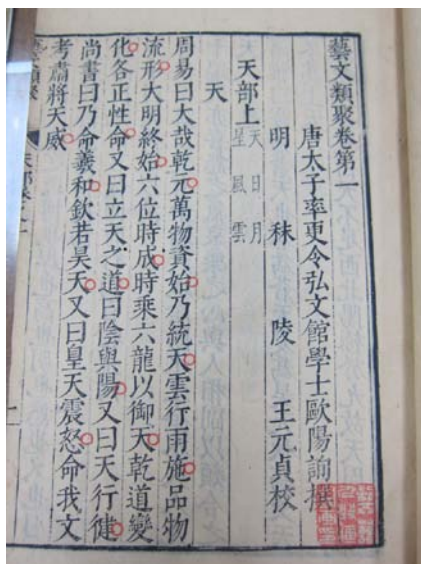 藝文類聚卷第一
唐太子率更令弘文館學士歐陽詢撰
明 秣 陵 王元貞校
天部上 天 日 月
星 風 雲
天
周易曰大哉乾元萬物資始乃統天雲行雨施品物
流形大明終始六位時成時乘六龍以御天乾道變
化各正性命又曰立天之道曰陰與陽又曰天行健
尚書曰乃命羲和欽若昊天又曰皇天震怒命我文
考肅將天威